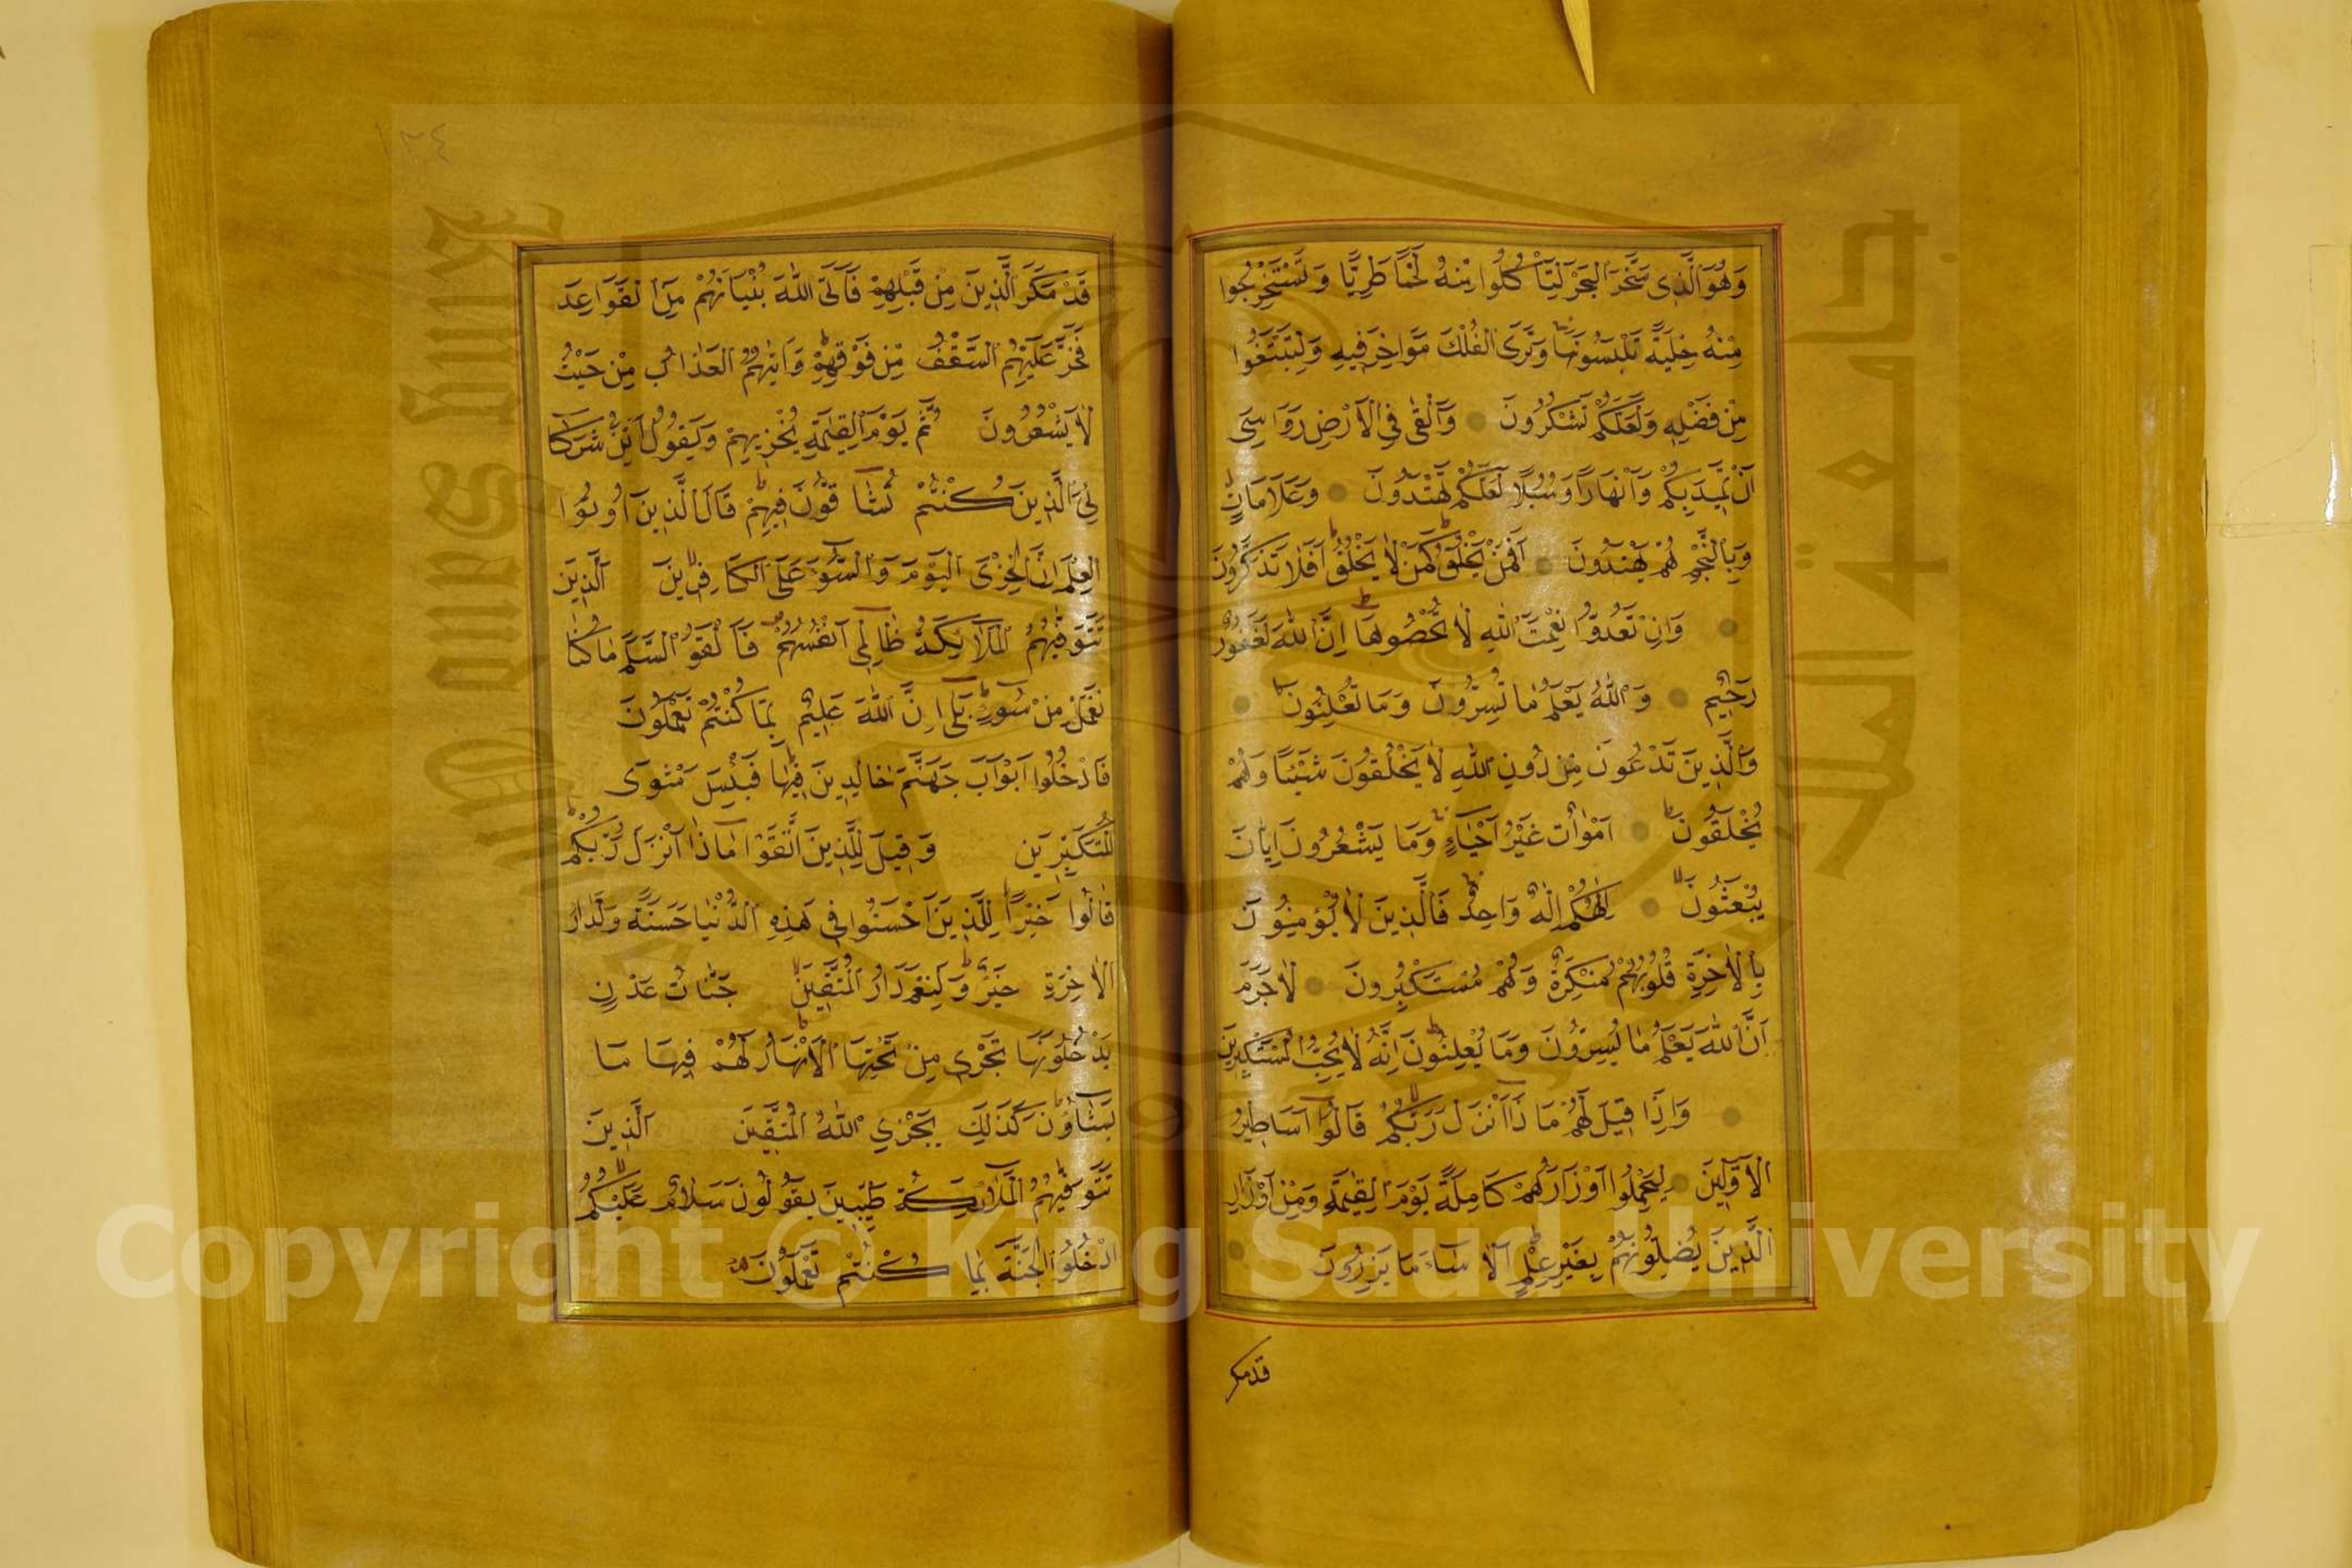 وَهُوَ الَّذِى سَخَّرَ الْبَحْرَ لِتَأْكُلُوا مِنْهُ لَحْمًا طَرِيًّا وَتَسْتَخْرِجُوا
مِنْهُ حِلْيَةً تَلْبَسُونَهَا وَتَرَى الْفُلْكَ مَوَاخِرَ فِيهِ وَلِتَبْتَغُوا
مِنْ فَضْلِهِ وَلَعَلَّكُمْ تَشْكُرُونَ وَأَلْقَى فِي الْأَرْضِ رَوَاسِىَ
أَنْ تَمِيدَ بِكُمْ وَأَنْهَارًا وَسُبُلًا لَعَلَّكُمْ تَهْتَدُونَ وَعَلَامَاتٍ
وَبِالنَّجْمِ هُمْ يَهْتَدُونَ أَفَمَنْ يَخْلُقُ كَمَنْ لَا يَخْلُقُ أَفَلَا تَذَكَّرُونَ
وَإِنْ تَعُدُّوا نِعْمَتَ اللَّهِ لَا تُحْصُوهَا إِنَّ اللَّهَ لَغَفُورٌ
رَحِيمٌ وَاللَّهُ يَعْلَمُ مَا تُسِرُّونَ وَمَا تُعْلِنُونَ
وَالَّذِينَ تَدْعُونَ مِنْ دُونِ اللَّهِ لَا يَخْلُقُونَ شَيْئًا وَهُمْ
يُخْلَقُونَ أَمْوَاتٌ غَيْرُ أَحْيَاءٍ وَمَا يَشْعُرُونَ أَيَّانَ
يُبْعَثُونَ إِلَهُكُمْ إِلَهٌ وَاحِدٌ فَالَّذِينَ لَا يُؤْمِنُونَ
بِالْآخِرَةِ قُلُوبُهُمْ مُنْكِرَةٌ وَهُمْ مُسْتَكْبِرُونَ لَا جَرَمَ
أَنَّ اللَّهَ يَعْلَمُ مَا يُسِرُّونَ وَمَا يُعْلِنُونَ إِنَّهُ لَا يُحِبُّ الْمُسْتَكْبِرِينَ
وَإِذَا قِيلَ لَهُمْ مَاذَا أَنْزَلَ رَبُّكُمْ قَالُوا أَسَاطِيرُ
الْأَوَّلِينَ لِيَحْمِلُوا أَوْزَارَهُمْ كَامِلَةً يَوْمَ الْقِيمَةِ وَمِنْ أَوْزَارِ
الَّذِينَ يُضِلُّونَهُمْ بِغَيْرِ عِلْمٍ أَلَا سَاءَ مَا يَزِرُونَ
قد مكر
١٣٤
قَدْ مَكَرَ الَّذِينَ مِنْ قَبْلِهِمْ فَأَتَى اللَّهُ بُنْيَانَهُمْ مِنَ الْقَوَاعِدِ
فَخَرَّ عَلَيْهِمُ السَّقْفُ مِنْ فَوْقِهِمْ وَأَتَيهُمُ الْعَذَابُ مِنْ حَيْثُ
لَا يَشْعُرُونَ ثُمَّ يَوْمَ الْقِيمَةِ يُخْزِيهِمْ وَيَقُولُ أَيْنَ شُرَكَا
ئِيَ الَّذِينَ كُنْتُمْ تُشَاقُّونَ فِيهِمْ قَالَ الَّذِينَ أُوتُوا
الْعِلْمَ إِنَّ الْخِزْىَ الْيَوْمَ وَالسُّوءَ عَلَى الْكَافِرِينَ الَّذِينَ
تَتَوَفَّيهُمُ الْمَلَائِكَةُ ظَالِمِي أَنْفُسِهِمْ فَأَلْقَوُا السَّلَمَ مَا كُنَّا
نَعْمَلُ مِنْ سُوءٍ بَلَى إِنَّ اللَّهَ عَلِيمٌ بِمَا كُنْتُمْ تَعْمَلُونَ
فَادْخُلُوا أَبْوَابَ جَهَنَّمَ خَالِدِينَ فِيهَا فَبِئْسَ مَثْوَى
الْمُتَكَبِّرِينَ وَقِيلَ لِلَّذِينَ اتَّقَوْا مَاذَا أَنْزَلَ رَبُّكُمْ
قَالُوا خَيْرًا لِلَّذِينَ أَحْسَنُوا فِي هَذِهِ الدُّنْيَا حَسَنَةٌ وَلَدَارُ
الْآخِرَةِ خَيْرٌ وَلَنِعْمَ دَارُ الْمُتَّقِينَ جَنَّاتُ عَدْنٍ
يَدْخُلُونَهَا تَجْرِي مِنْ تَحْتِهَا الْأَنْهَارُ لَهُمْ فِيهَا مَا
يَشَاؤُنَ كَذَلِكَ يَجْزِي اللَّهُ الْمُتَّقِينَ الَّذِينَ
تَتَوَفَّيهُمُ الْمَلَائِكَةُ طَيِّبِينَ يَقُولُونَ سَلَامٌ عَلَيْكُمُ
ادْخُلُوا الْجَنَّةَ بِمَا كُنْتُمْ تَعْمَلُونَ
جامعة الملك سعود
King Saud University
1957
Copyright © King Saud University